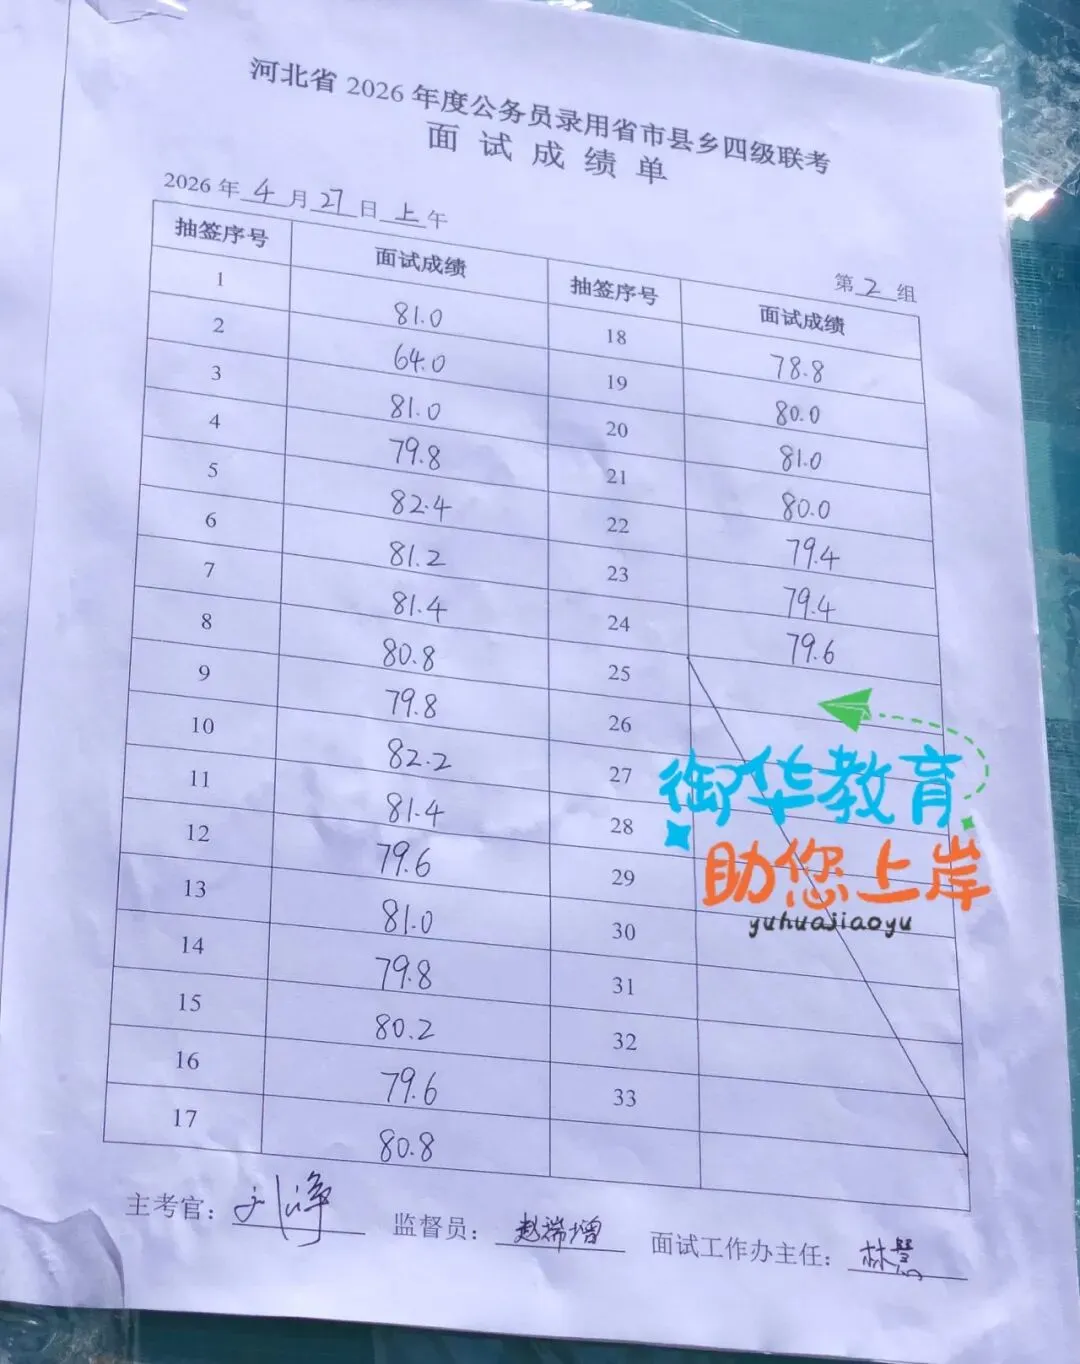 河北省 2026 年度公务员录用省市县乡四级联考
面试成绩单
2026 年 4 月 27 日 上 午
第 2 组
抽签序号 面试成绩 抽签序号 面试成绩
1 81.0 18 78.8
2 64.0 19 80.0
3 81.0 20 81.0
4 79.8 21 80.0
5 82.4 22 79.4
6 81.2 23 79.4
7 81.4 24 79.6
8 80.8 25
9 79.8 26
10 82.2 27
11 81.4 28
12 79.6 29
13 81.0 30
14 79.8 31
15 80.2 32
16 79.6 33
17 80.8
御华教育
助您上岸
yuhuajiaoyu
主考官: 监督员: 赵瑞增 面试工作办主任: 林